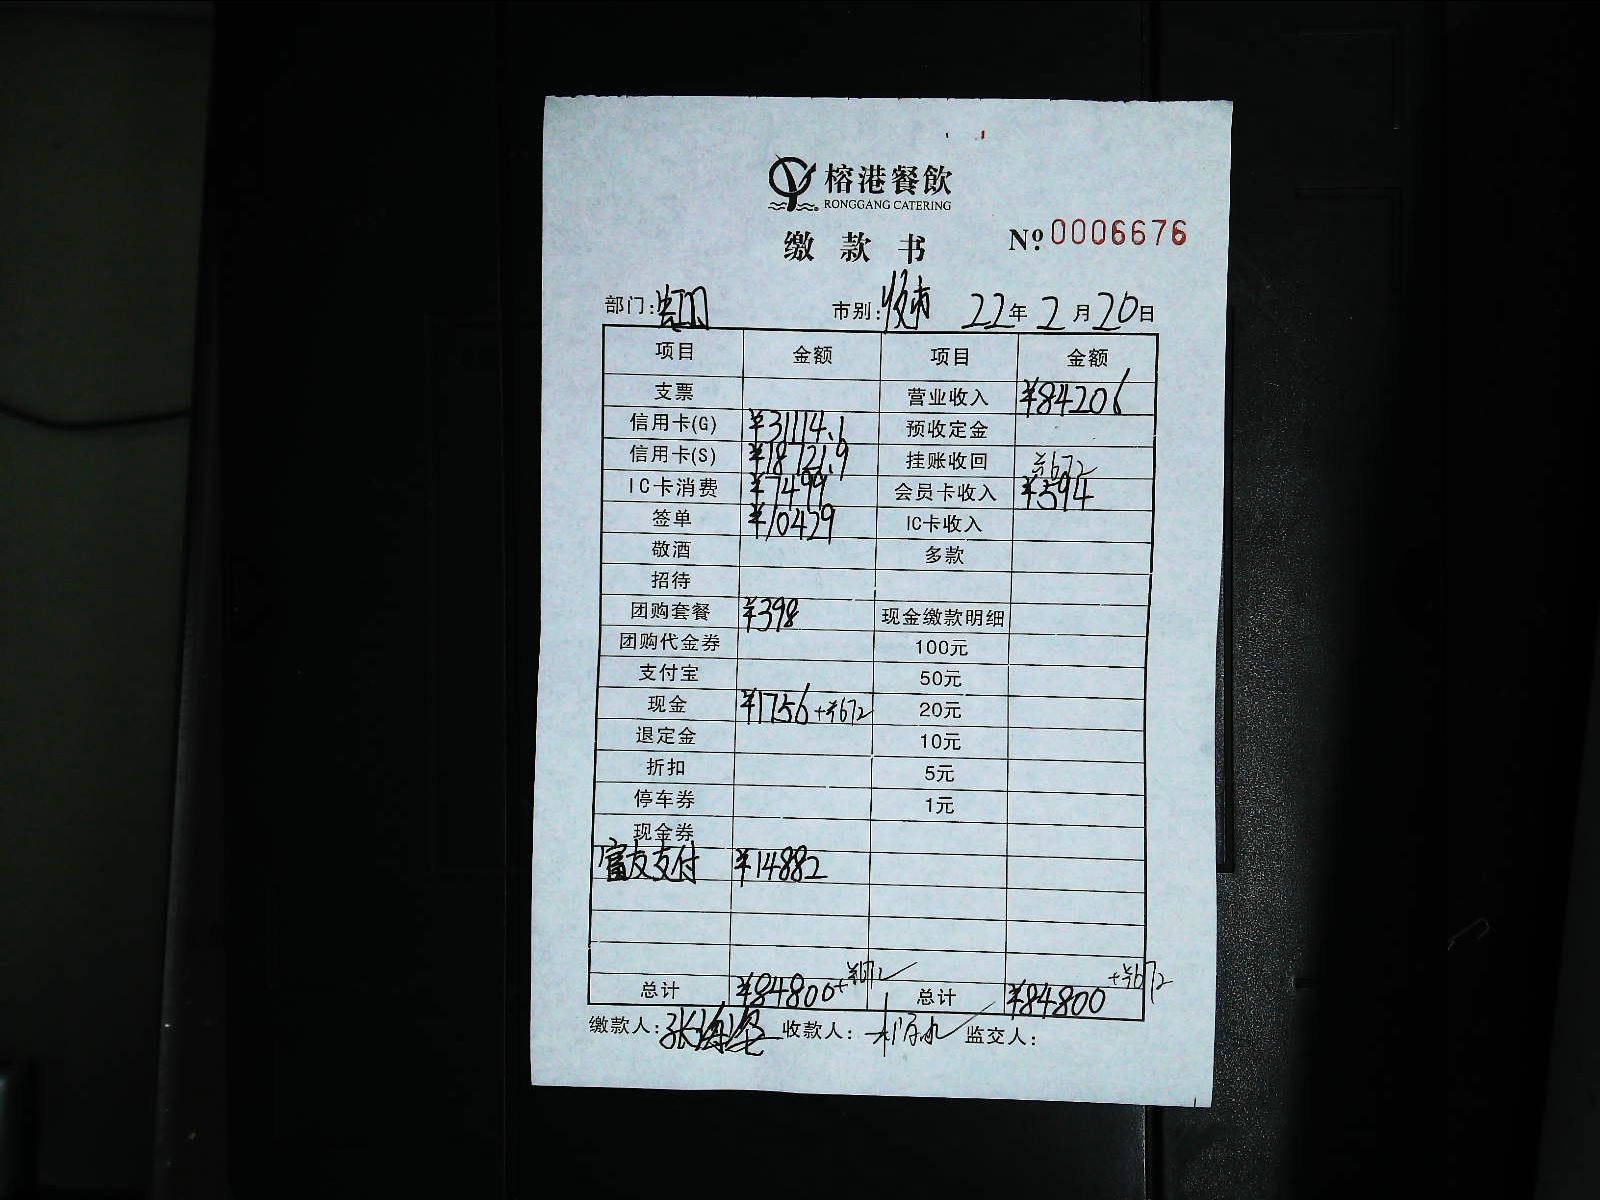 榕港餐飲
RONGGANG CATERING
缴款书
№ 0006676
部门: 市别: 夜市 22年2月20日
项目 金额 项目 金额
支票 营业收入 ¥84206
信用卡(G) ¥31114.1 预收定金
信用卡(S) ¥18721.9 挂账收回 ¥672
IC卡消费 ¥7499 会员卡收入 ¥594
签单 ¥10429 IC卡收入
敬酒 多款
招待
团购套餐 ¥398 现金缴款明细
团购代金券 100元
支付宝 50元
现金 ¥1756+¥672 20元
退定金 10元
折扣 5元
停车券 1元
现金券
富友支付 ¥14882
总计 ¥84800+¥672 总计 ¥84800+¥672
缴款人: 收款人: 监交人: